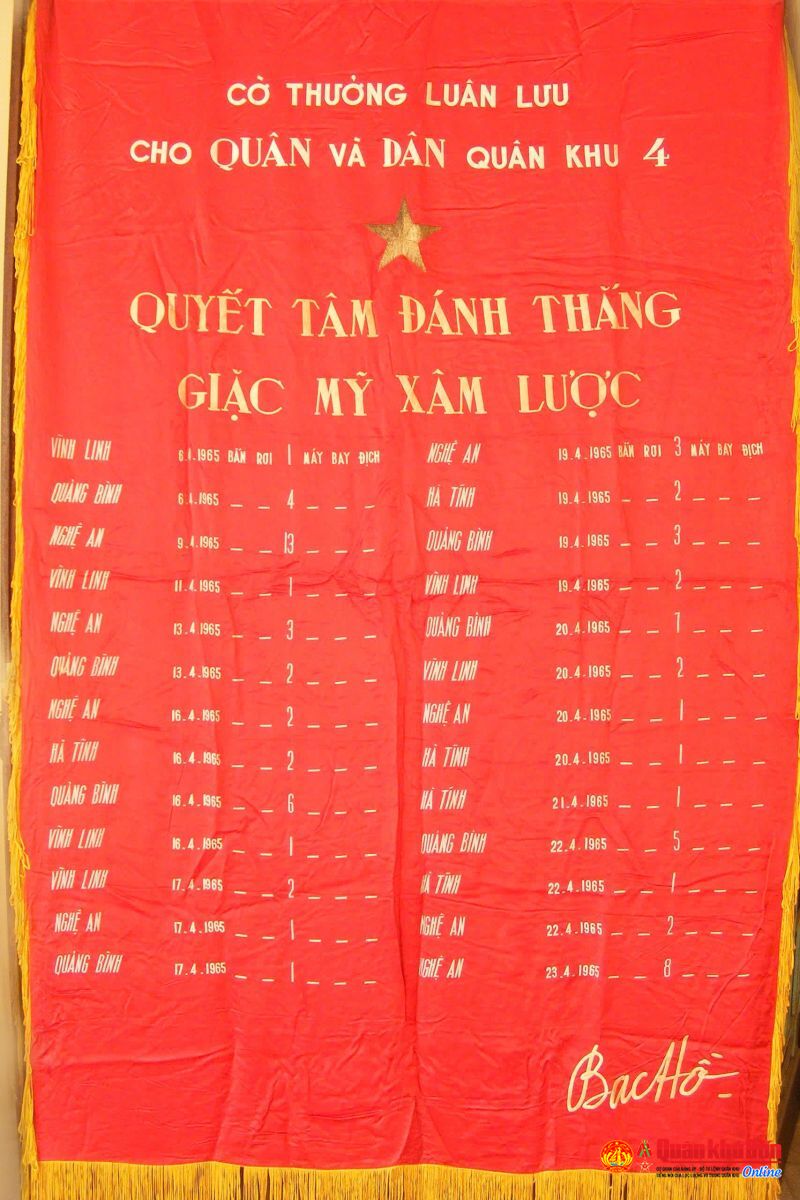 CỜ THƯỞNG LUÂN LƯU
CHO QUÂN VÀ DÂN QUÂN KHU 4
QUYẾT TÂM ĐÁNH THẮNG
GIẶC MỸ XÂM LƯỢC
VĨNH LINH 6.4.1965 BẮN RƠI 1 MÁY BAY ĐỊCH
QUẢNG BÌNH 6.4.1965 _ _ 4 _ _ _
NGHỆ AN 9.4.1965 _ _ 13 _ _ _
VĨNH LINH 11.4.1965 _ _ 1 _ _ _
NGHỆ AN 13.4.1965 _ _ 3 _ _ _
QUẢNG BÌNH 13.4.1965 _ _ 2 _ _ _
NGHỆ AN 16.4.1965 _ _ 2 _ _ _
HÀ TĨNH 16.4.1965 _ _ 2 _ _ _
QUẢNG BÌNH 16.4.1965 _ _ 6 _ _ _
VĨNH LINH 16.4.1965 _ _ 1 _ _ _
VĨNH LINH 17.4.1965 _ _ 2 _ _ _
NGHỆ AN 17.4.1965 _ _ 1 _ _ _
QUẢNG BÌNH 17.4.1965 _ _ 1 _ _ _
NGHỆ AN 19.4.1965 BẮN RƠI 3 MÁY BAY ĐỊCH
HÀ TĨNH 19.4.1965 _ _ 2 _ _ _
QUẢNG BÌNH 19.4.1965 _ _ 3 _ _ _
VĨNH LINH 19.4.1965 _ _ 2 _ _ _
QUẢNG BÌNH 20.4.1965 _ _ 7 _ _ _
VĨNH LINH 20.4.1965 _ _ 2 _ _ _
NGHỆ AN 20.4.1965 _ _ 1 _ _ _
HÀ TĨNH 20.4.1965 _ _ 1 _ _ _
HÀ TĨNH 21.4.1965 _ _ 1 _ _ _
QUẢNG BÌNH 22.4.1965 _ _ 5 _ _ _
HÀ TĨNH 22.4.1965 _ _ 1 _ _ _
NGHỆ AN 22.4.1965 _ _ 2 _ _ _
NGHỆ AN 23.4.1965 _ _ 8 _ _ _
Bac Hồ
Quân khu Bốn
Online